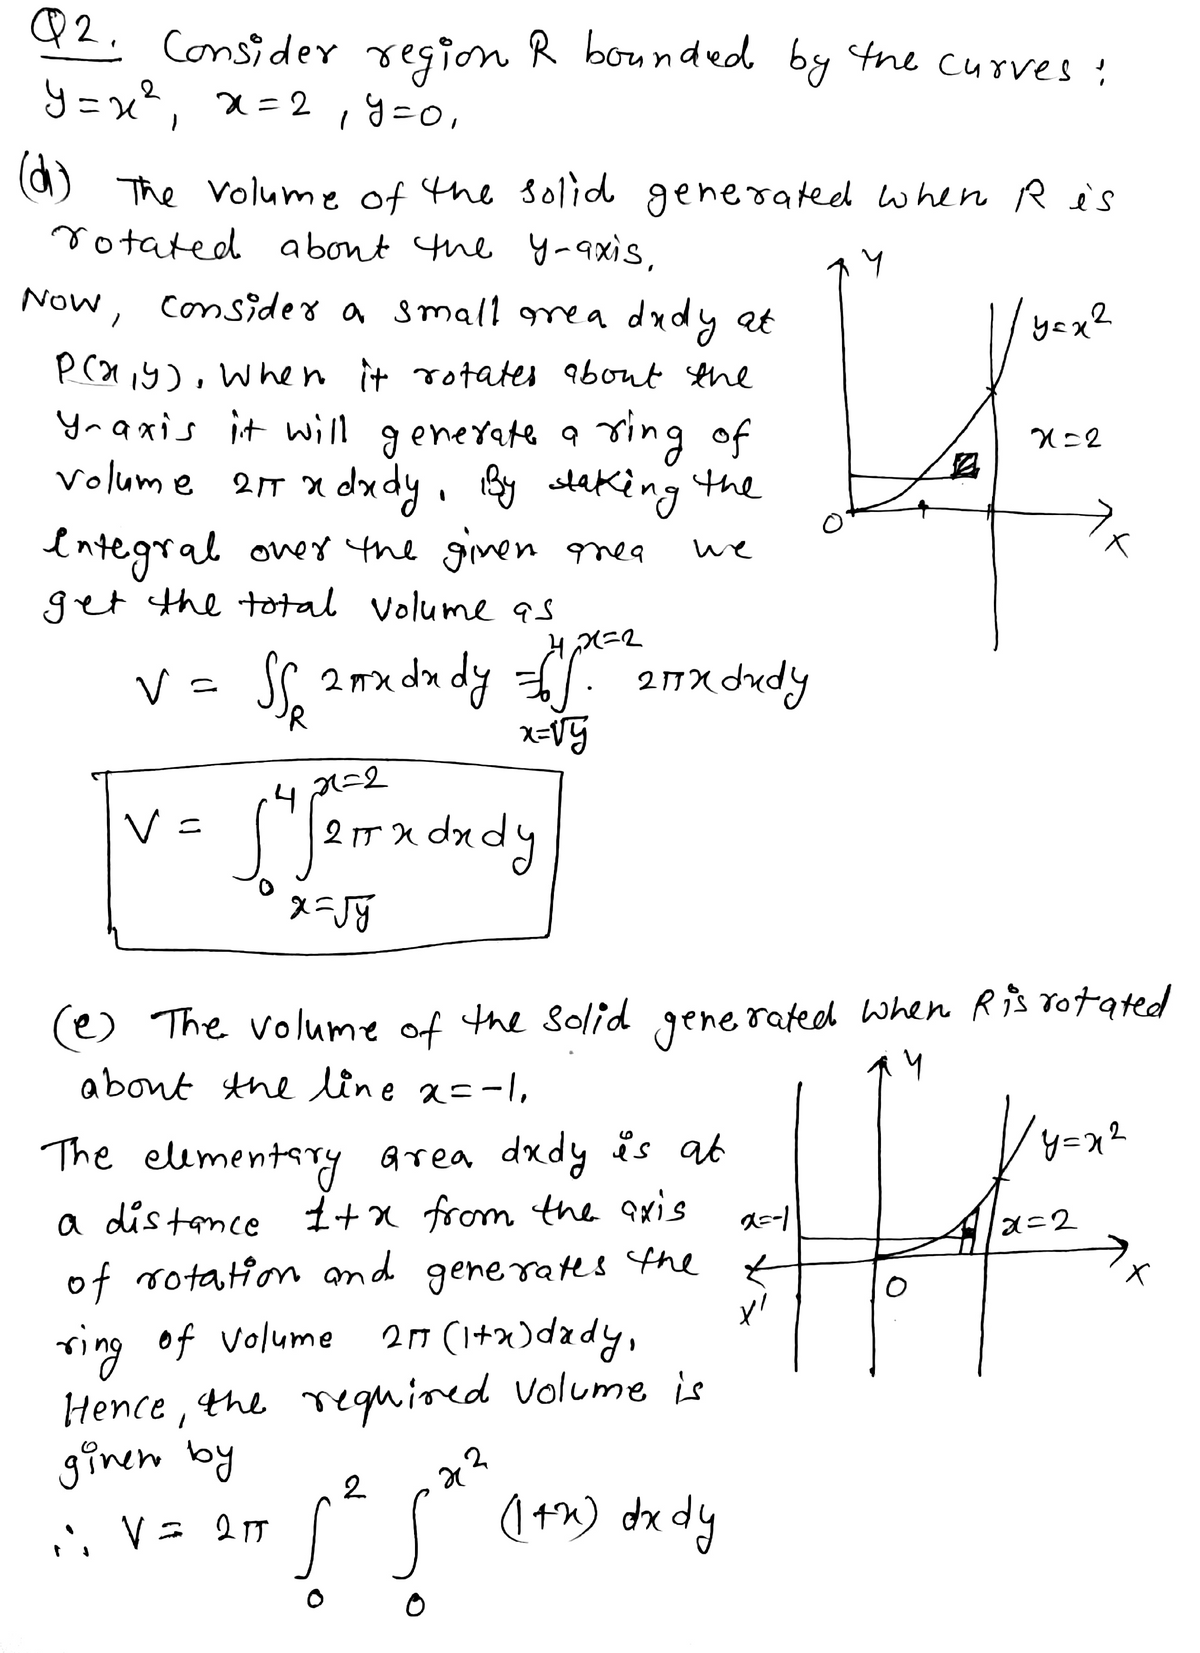 Q2. Consider region R bounded by the curves :
y=x², x=2 , y=0,
(d) The volume of the solid generated when R is
rotated about the y-axis.
Now, consider a small area dxdy at
P(x,y). When it rotates about the
y-axis it will generate a ring of
volume 2π x dxdy. By taking the
integral over the given area we
get the total volume as
V = ∬_R 2πx dx dy = ∫_0^4 ∫_{x=√y}^{x=2} 2πx dxdy
V = ∫_0^4 ∫_{x=√y}^{x=2} 2π x dx dy
Y
y=x²
x=2
O
X
(e) The volume of the solid generated when R is rotated
about the line x=-1.
The elementary area dxdy is at
a distance 1+x from the axis
of rotation and generates the
ring of volume 2π (1+x)dxdy.
Hence, the required volume is
given by
∴ V = 2π ∫_0^2 ∫_0^{x²} (1+x) dx dy
Y
y=x²
x=-1
x=2
X
X'
O